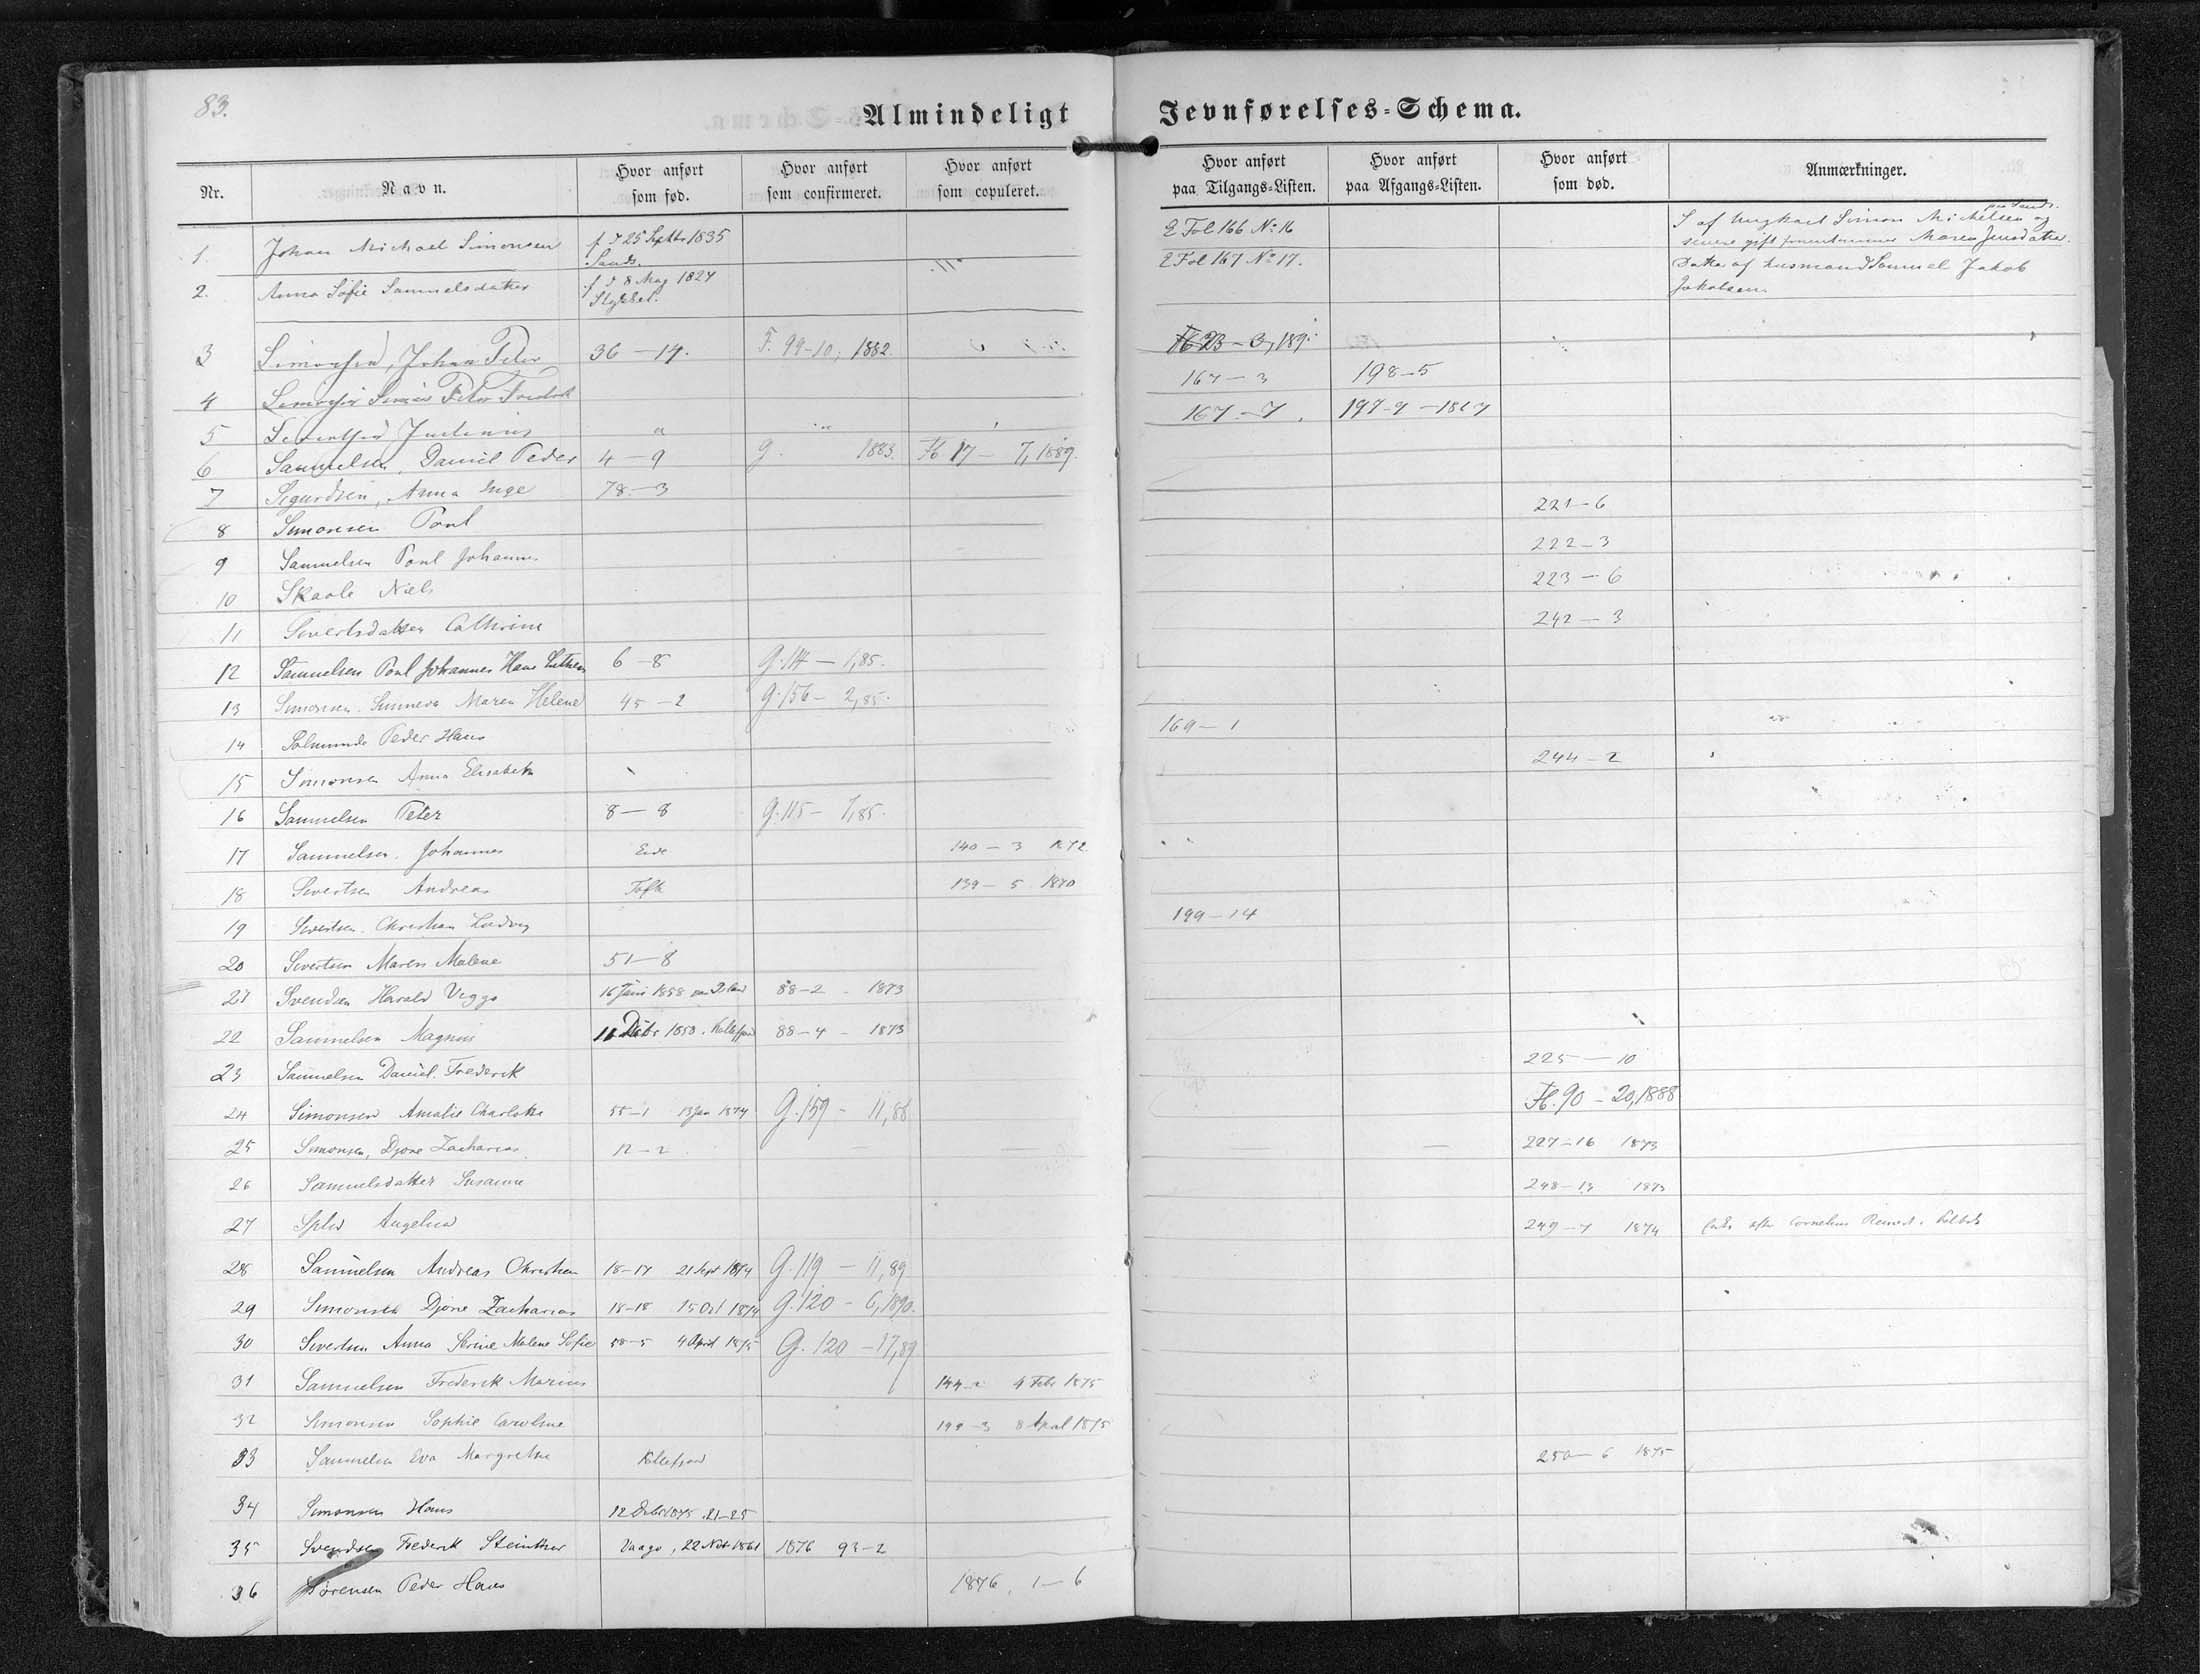 83.
Almindeligt Jevnførelses-Schema.
Nr. Navn. Hvor anført som fød. Hvor anført som confirmeret. Hvor anført som copuleret. Hvor anført paa Tilgangs-Listen. Hvor anført paa Afgangs-Listen. Hvor anført som død. Anmærkninger.
1. Johan Michael Simonsen f. d 25 Septbr 1835 Sands. E Fol 166 No 16 S af Ungkarl Simon Michelsen og paa Sands. senere gift Maren Jensdatter.
2. Anna Sofie Samuelsdatter f. d 8 May 1824 E Fol 167 No 17. Datter af husmand Samuel Jakob Jakobsen.
3 Simonsen, Johan Peter 36-14. F. 99-10, 1882. 23-3, 189
4 Simonsen Peter Fredrik 167-3 198-5
5 Sivertsen 167-7. 197-9
6 Samuelsen, Daniel Peder 4-9 G. 1883. Fb 17-7, 1889.
7 Sigurdsen, Anna Inge 78-3
8 Simonsen Poul 221-6
9 Samuelsen Poul Johannes 222-3
10 Skaale Niels 223-6
11 Sivertsdatter Cathrine 242-3
12 Samuelsen Poul Johannes Hans 6-8 G. 114-1,85.
13 Simonsen Sunneva Maren Helene 45-2 G. 156-2,85.
14 Peder Hans 169-1
15 Simonsen Anna Elisabeth 244-2
16 Samuelsen Peter 8-8 G. 115-7,85.
17 Samuelsen. Johannes Eide 140-3 1872
18 Sivertsen Andreas Tofte 139-5 1870
19 Sivertsen. Christian Ludvig 199-14
20 Sivertsen Maren Malene 51-8
21 Svendsen Harald Viggo 16 Juni 1858 88-2 - 1873
22 Samuelsen Magnus 11 Debr 1858. 88-4 - 1873
23 Samuelsen Daniel Frederik 225-10
24 Simonsen Amalie Charlotte 55-1 13 Jan 1874 G. 159-11,88. Fb. 90-20,1888
25 Simonsen, Djone Zacharias. 12-2 227-16 1873
26 Samuelsdatter Susanne 248-13 1873
27 Splid Angelica 249-7 1874 Enke efter Cornelius
28 Samuelsen Andreas Christian 18-17 21 Sept 1874 G. 119-11,89
29 Simonsen Djone Zacharias 18-18 15 Oct 1874 G. 120-6,1890.
30 Sivertsen Anna Malene Sofie 58-5 4 April 1875 G. 120-17,89
31 Samuelsen Frederik Marius 4 Febr 1875
32 Simonsen Sophie Caroline 8 April 1875
33 Samuelsen Eva Margrethe Kollefjord 250-6 1875
34 Simonsen Hans 12 Debr 1875. 21-25
35 Svendsen Frederik Steinthor Vaagø, 22 Nov 1861 1876 93-2
36 Sørensen Peder Hans 1876. 1-6